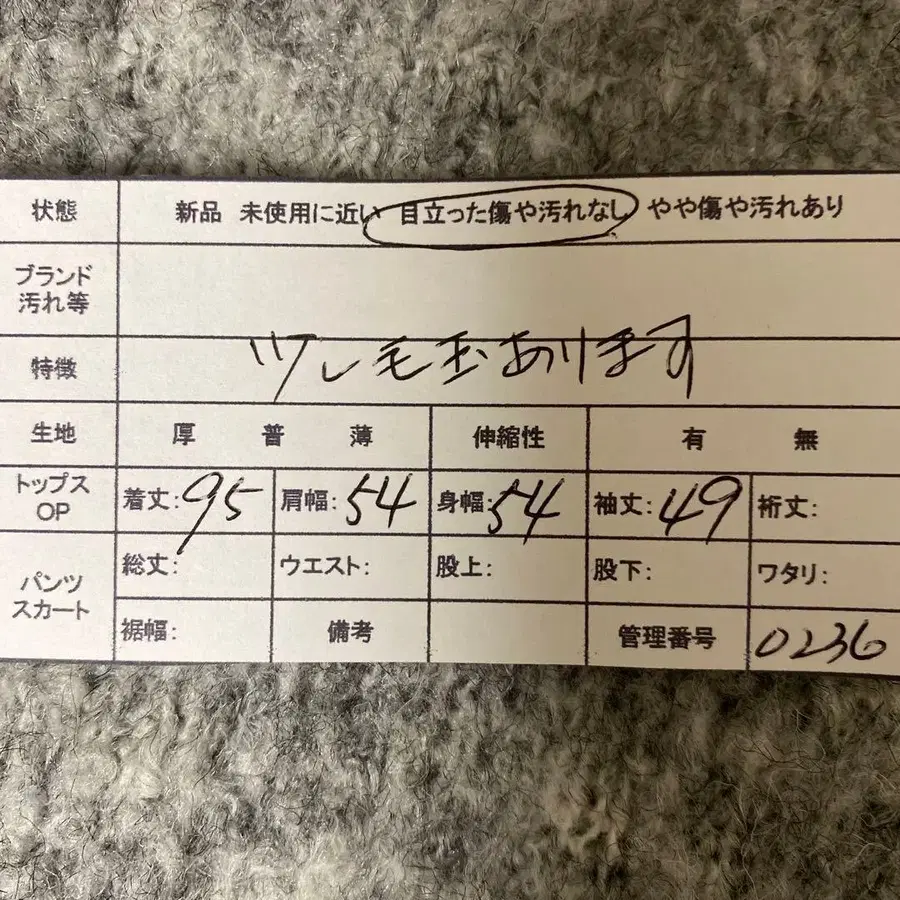 状態 新品 未使用に近い 目立った傷や汚れなし やや傷や汚れあり
ブランド
汚れ等
特徴 ツレ毛玉あります
生地 厚 普 薄 伸縮性 有 無
トップス
OP
着丈:95 肩幅:54 身幅:54 袖丈:49 裄丈:
パンツ
スカート
総丈: ウエスト: 股上: 股下: ワタリ:
裾幅: 備考 管理番号 0236